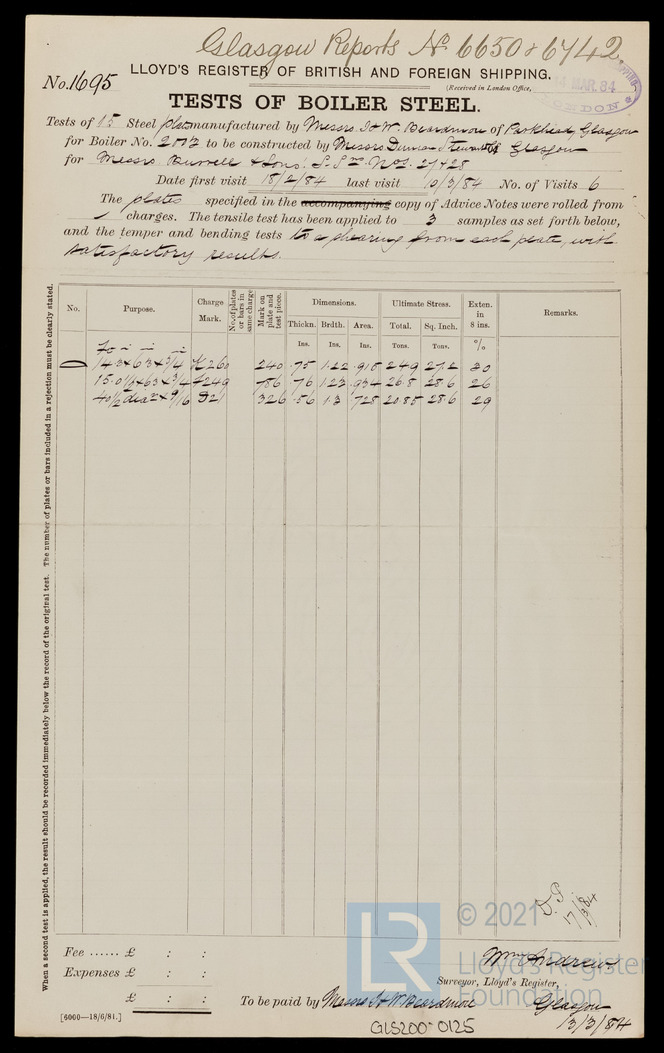 Glasgow Reports No 6650 & 6742
No. 1695
LLOYD'S REGISTER OF BRITISH AND FOREIGN SHIPPING.
(Received in London Office,
MAR. 84
LONDON
TESTS OF BOILER STEEL.
Tests of 15 Steel plates manufactured by Messrs I & W. Beardmore of Parkhead, Glasgow
for Boiler No. to be constructed by Messrs Duncan Stewart & Glasgow
for Messrs Burrell & Sons' S.Srs Nos. 27 & 28
Date first visit 18/2/84 last visit 10/3/84 No. of Visits 6
The plates specified in the accompanying copy of Advice Notes were rolled from
charges. The tensile test has been applied to 3 samples as set forth below,
and the temper and bending tests to a shearing from each plate, with
satisfactory results.
When a second test is applied, the result should be recorded immediately below the record of the original test. The number of plates or bars included in a rejection must be clearly stated.
No. Purpose. Charge Mark. No. of plates or bars in same charge Mark on plate and test piece. Dimensions. Ultimate Stress. Exten. in 8 ins. Remarks.
Thickn. Brdth. Area. Total. Sq. Inch.
Ins. Ins. Ins. Tons. Tons. %
14.3 x 63 x 3/4 K260 240 .75 1.22 .915 24.9 27.2 30
15.0 1/2 x 63 x 3/4 249 786 .76 1.23 .934 26.8 28.6 26
40 1/2 diar x 9/16 D21 326 .56 1.3 .728 20.85 28.6 29
17/3/84
Fee ...... £ : :
Expenses £ : :
£ : :
Wm Andrews
Surveyor, Lloyd's Register,
To be paid by Messrs I & W Beardmore
Glasgow
13/3/84
[6000—18/6/81.]
GLS200-0125
LR
© 2021
Lloyd's Register
Foundation